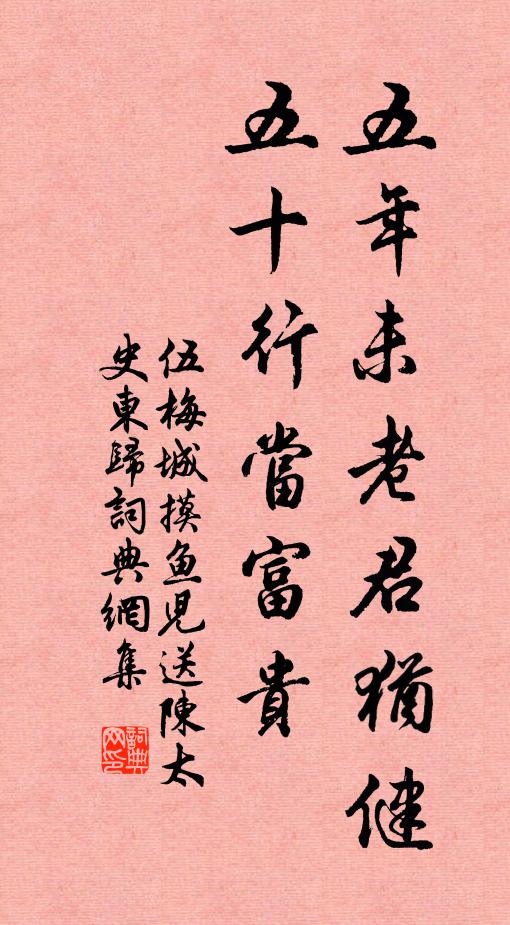 五年未老君猶健
五十行當富貴
伍梅城摸魚兒送陳太
史東歸詞典網集
詞典网印